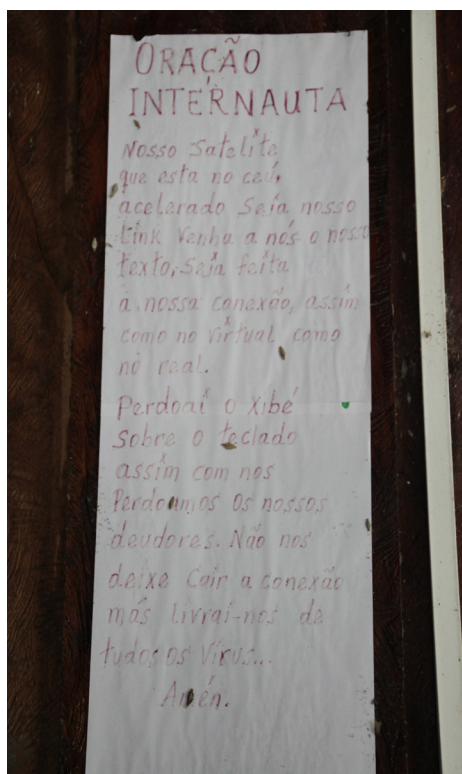 ORAÇÃO
INTERNAUTA
Nosso Satelite
que esta no ceú,
acelerado Seja nosso
Link Venha a nós o nosso
texto, Seja feita
a nossa conexão, assim
como no virtual como
no real.
Perdoai o xibé
sobre o teclado
assim com nos
Perdoamos os nossos
deudores. Não nos
deixe Cair a conexão
más Livrai-nos de
tudos os Vírus...
Amén.